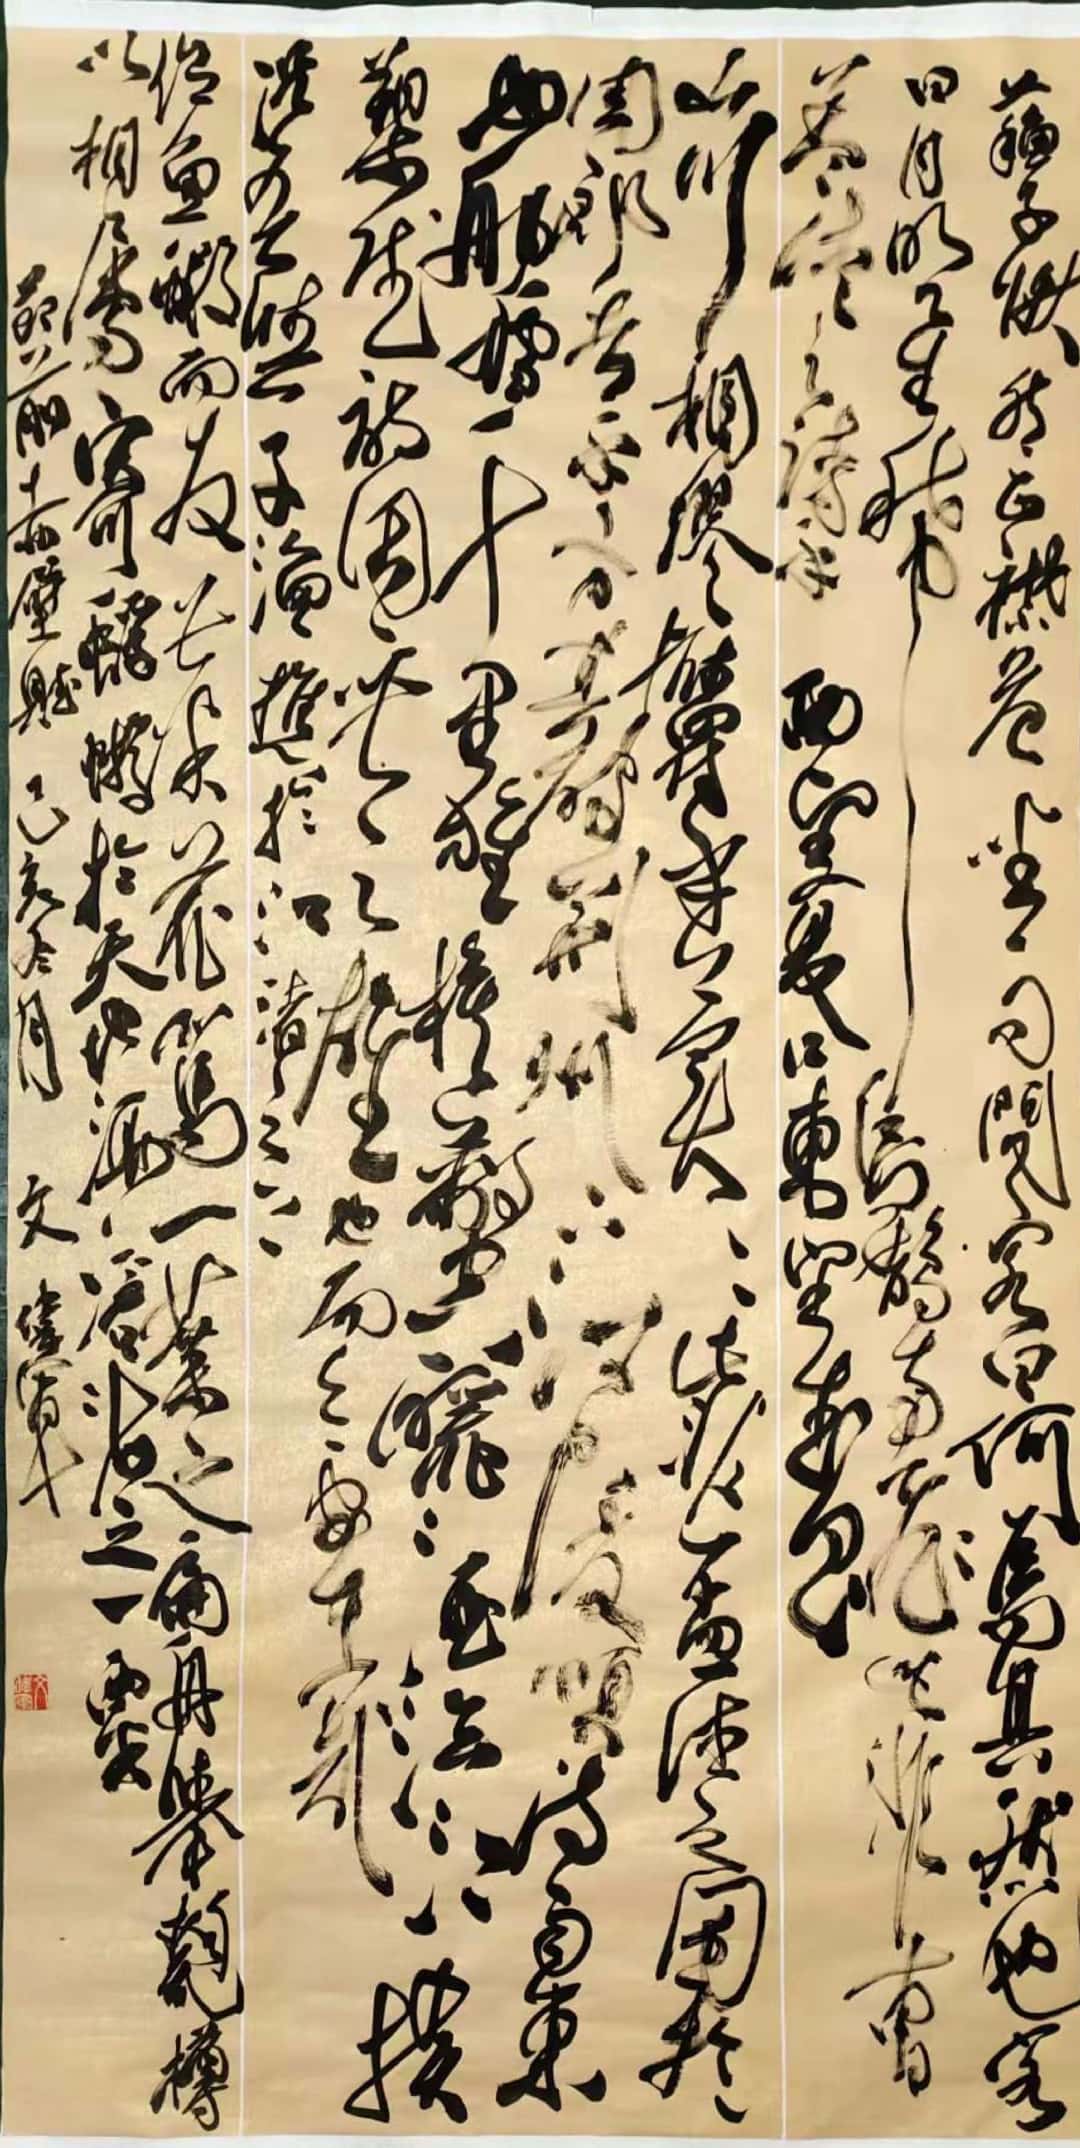 蘇子愀然正襟危坐而問客曰何為其然也客
曰月明星稀烏鵲南飛此非曹
孟德之詩乎西望夏口東望武昌
山川相繆鬱乎蒼蒼此非孟德之困於
周郎者乎方其破荊州下江陵順流而東
也舳艫千里旌旗蔽空釃酒臨江橫
槊賦詩固一世之雄也而今安在哉
況吾與子漁樵於江渚之上
侶魚蝦而友麋鹿駕一葉之扁舟舉匏樽
以相屬寄蜉蝣於天地渺滄海之一粟
節前赤壁賦 己亥冬月 文偉軍